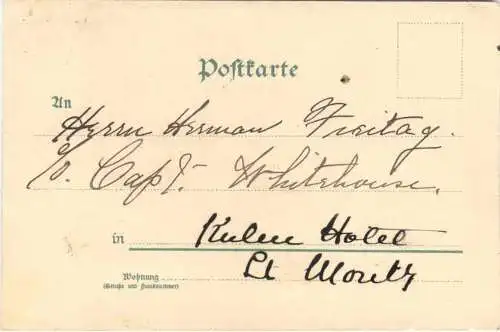 Postkarte
An
Herrn Herman Freitag.
c/o. Capt. Whitehouse.
in Kulm Hotel
St Moritz
Wohnung
(Straße und Hausnummer)